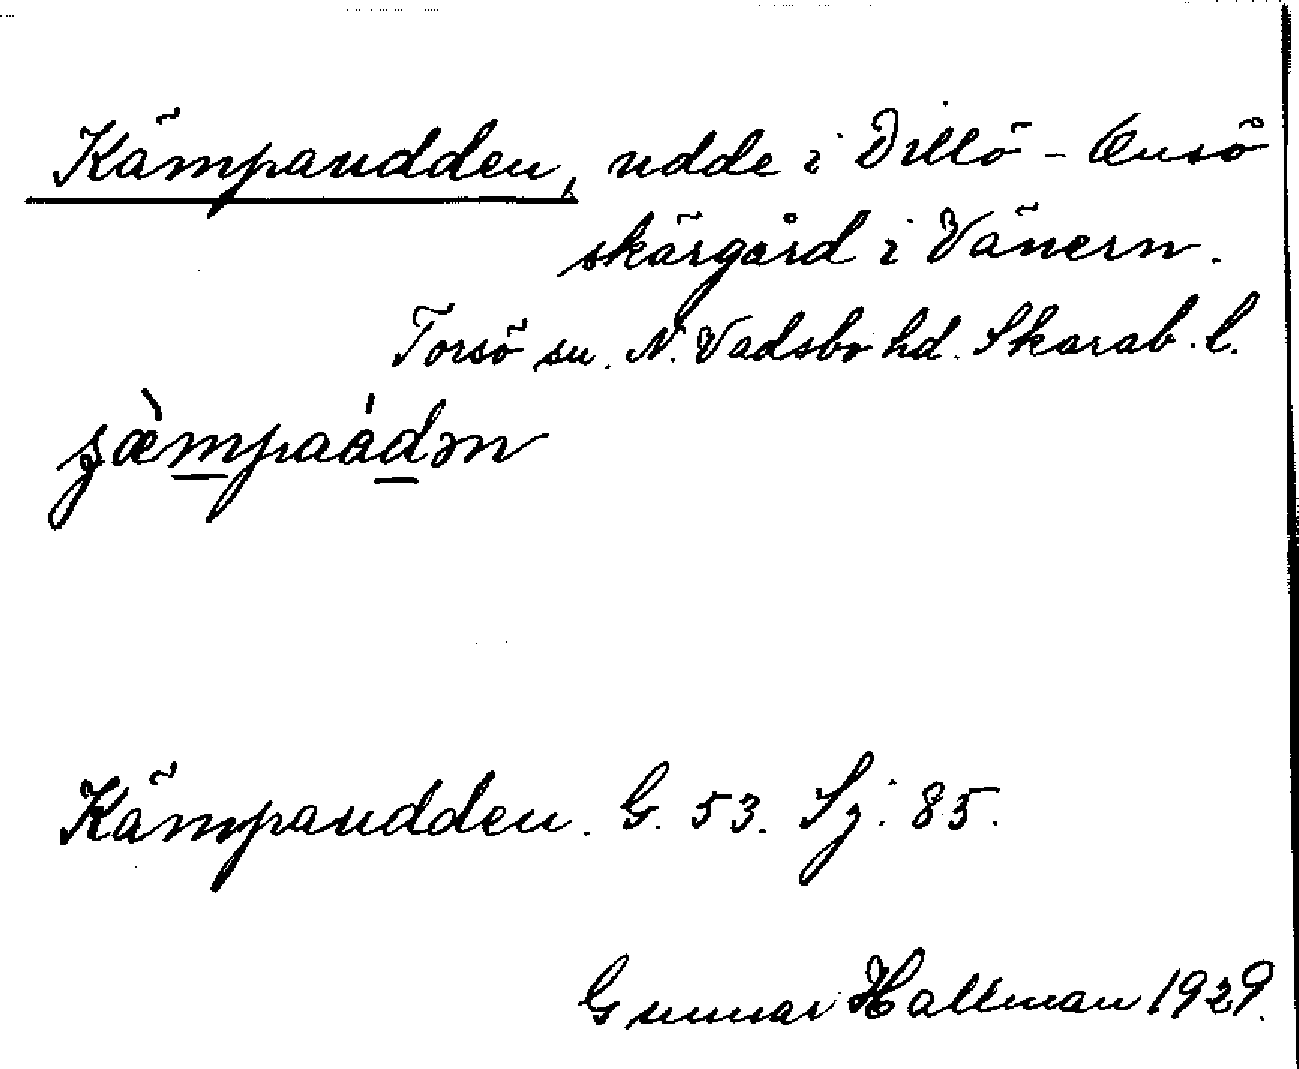 Kämpaudden, udde i Dillö - Onsö
skärgård i Vänern.
Torsö sn. N. Vadsbo hd. Skarab. l.
Kämpaudden. G. 53. Sj. 85.
Gunnar Hallman 1929.